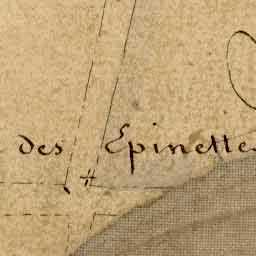 des Epinettes